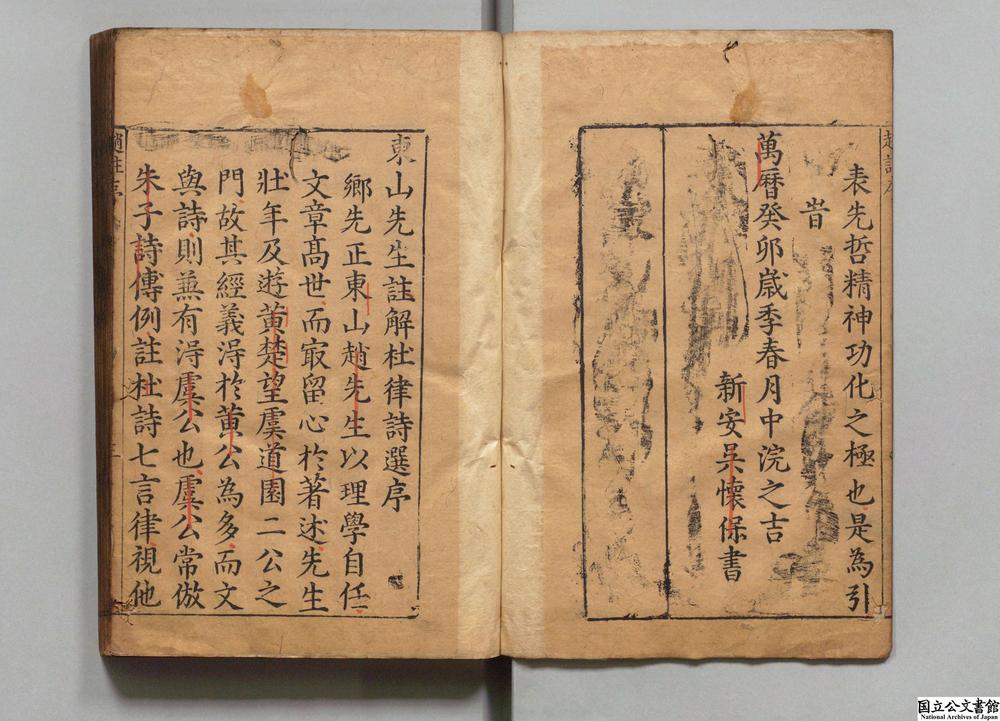 表先哲精神功化之極也是為引
旹
萬曆癸卯嵗季春月中浣之吉
新安吳懷保書
東山先生註解杜律詩選序
鄉先正東山趙先生以理學自任
文章髙世而㝡留心扵著述先生
壯年及遊黄楚望虞道園二公之
門故其經義淂扵黄公為多而文
與詩則兼有淂虞公也虞公常倣
朱子詩傳例註杜詩七言律視他
国立公文書館
National Archives of Japan